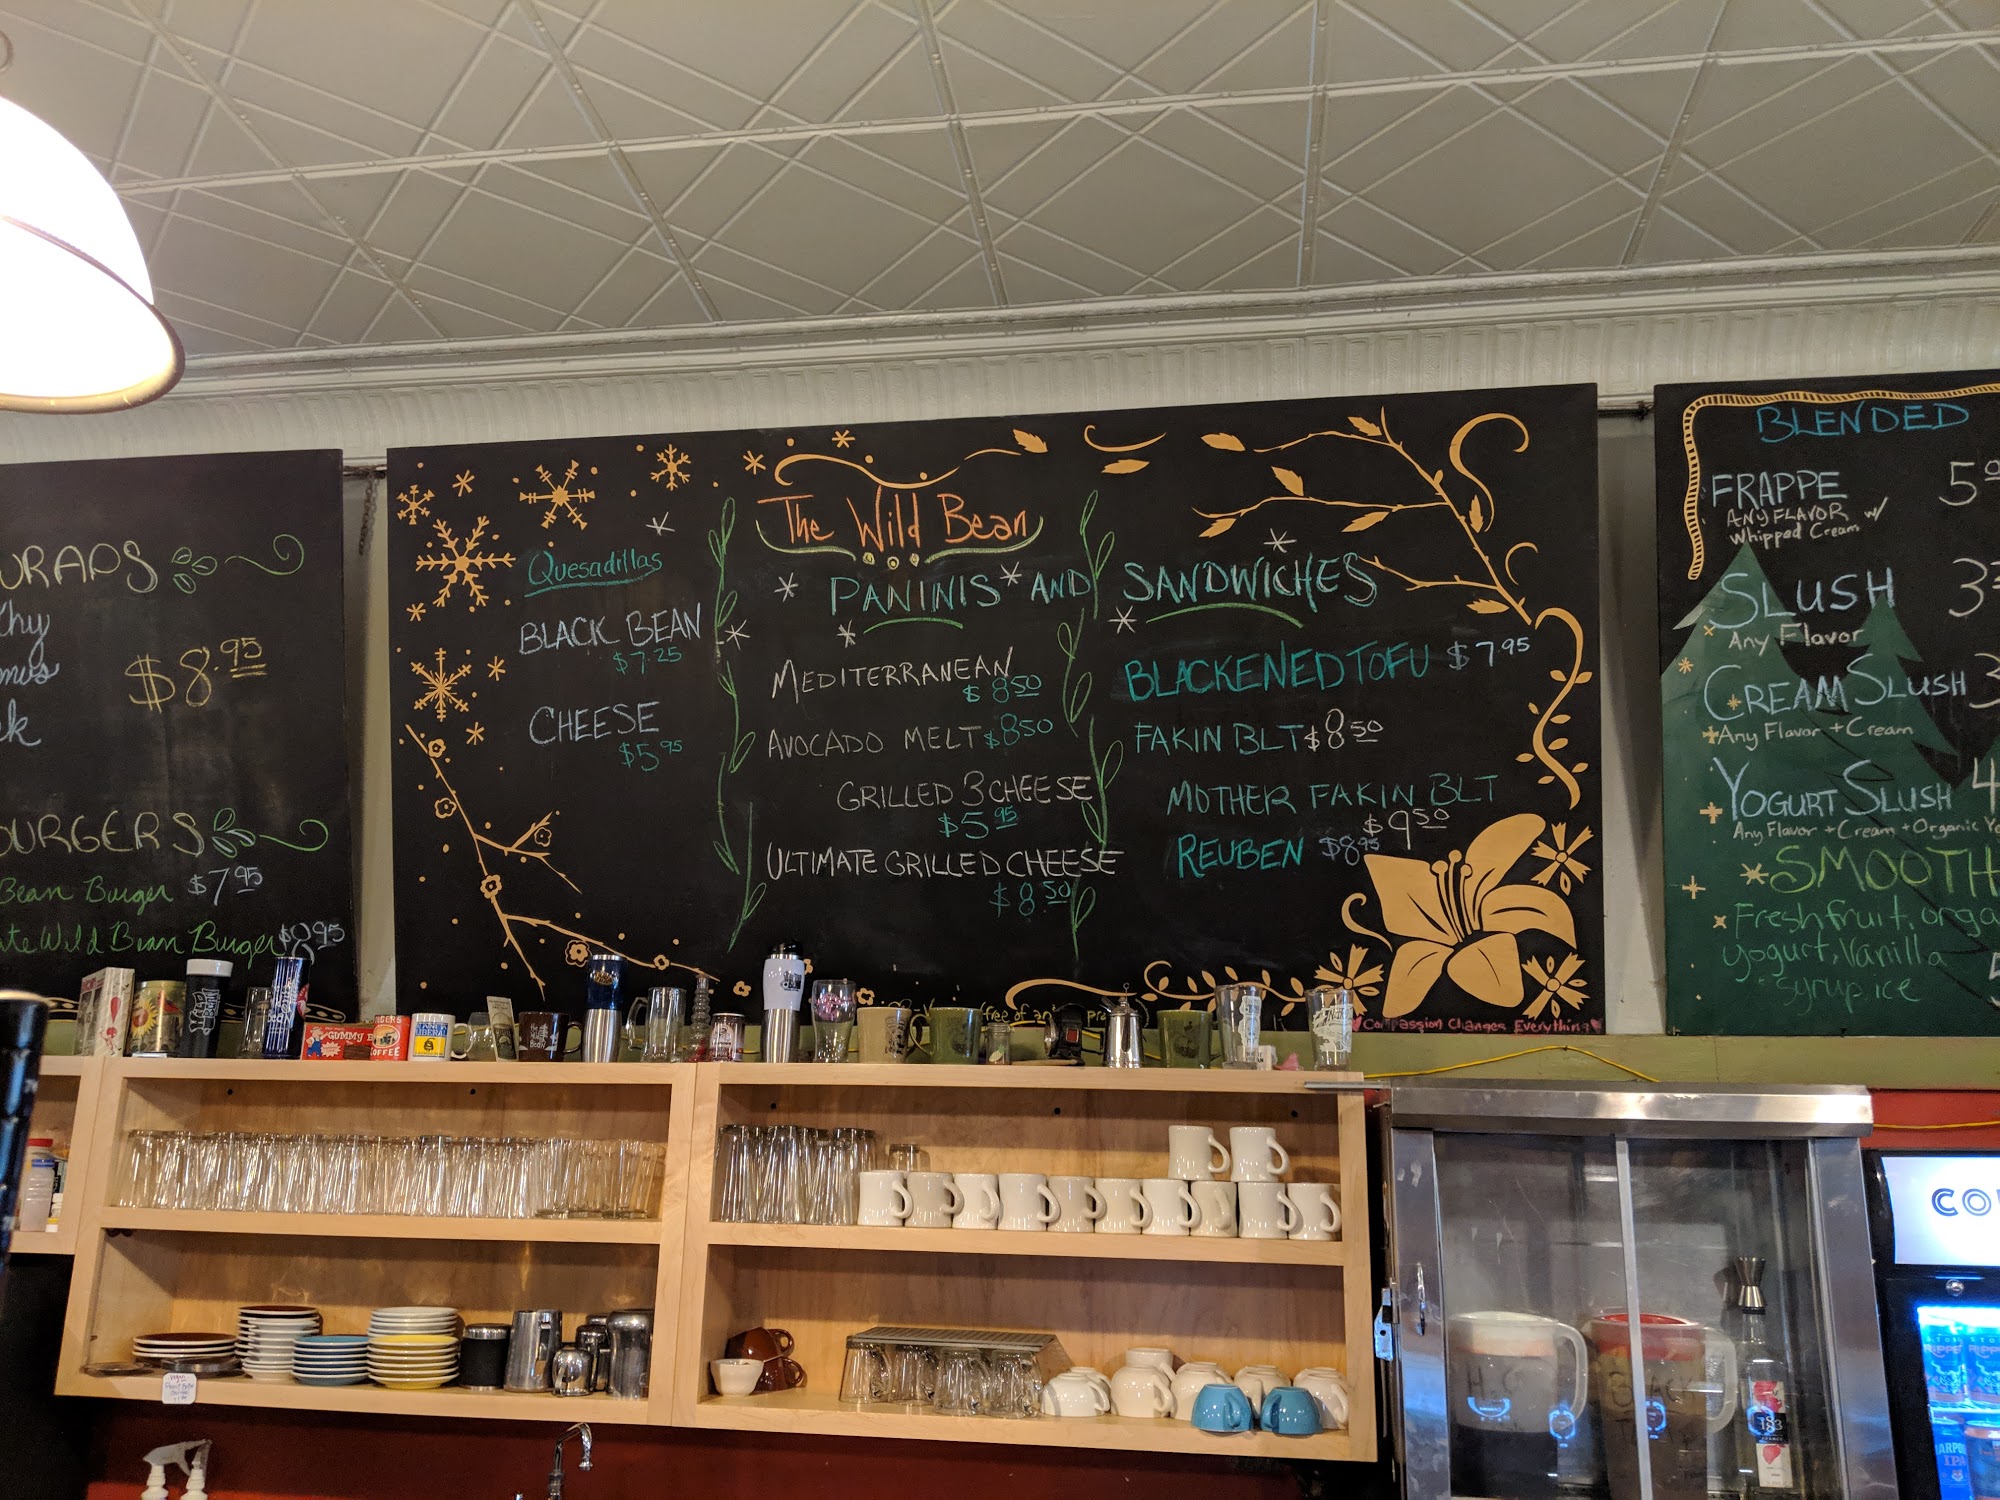 $8.95
$7.95
Bean Burger
Wild Bean Burger $8.95
The Wild Bean
Quesadillas
BLACK BEAN
$7.25
CHEESE
$5.95
PANINIS AND SANDWICHES
MEDITERRANEAN
$8.50
AVOCADO MELT $8.50
GRILLED 3 CHEESE
$5.95
ULTIMATE GRILLED CHEESE
$8.50
BLACKENED TOFU $7.95
FAKIN BLT $8.50
MOTHER FAKIN BLT
$9.50
REUBEN $8.95
Compassion Changes Everything
BLENDED
FRAPPE
ANY FLAVOR w/
Whipped Cream
SLUSH
Any Flavor
CREAM SLUSH
Any Flavor + Cream
YOGURT SLUSH
Any Flavor + Cream + Organic
Fresh fruit,
yogurt, Vanilla
syrup, ice
GUMMY
COFFEE
H2O
IPA